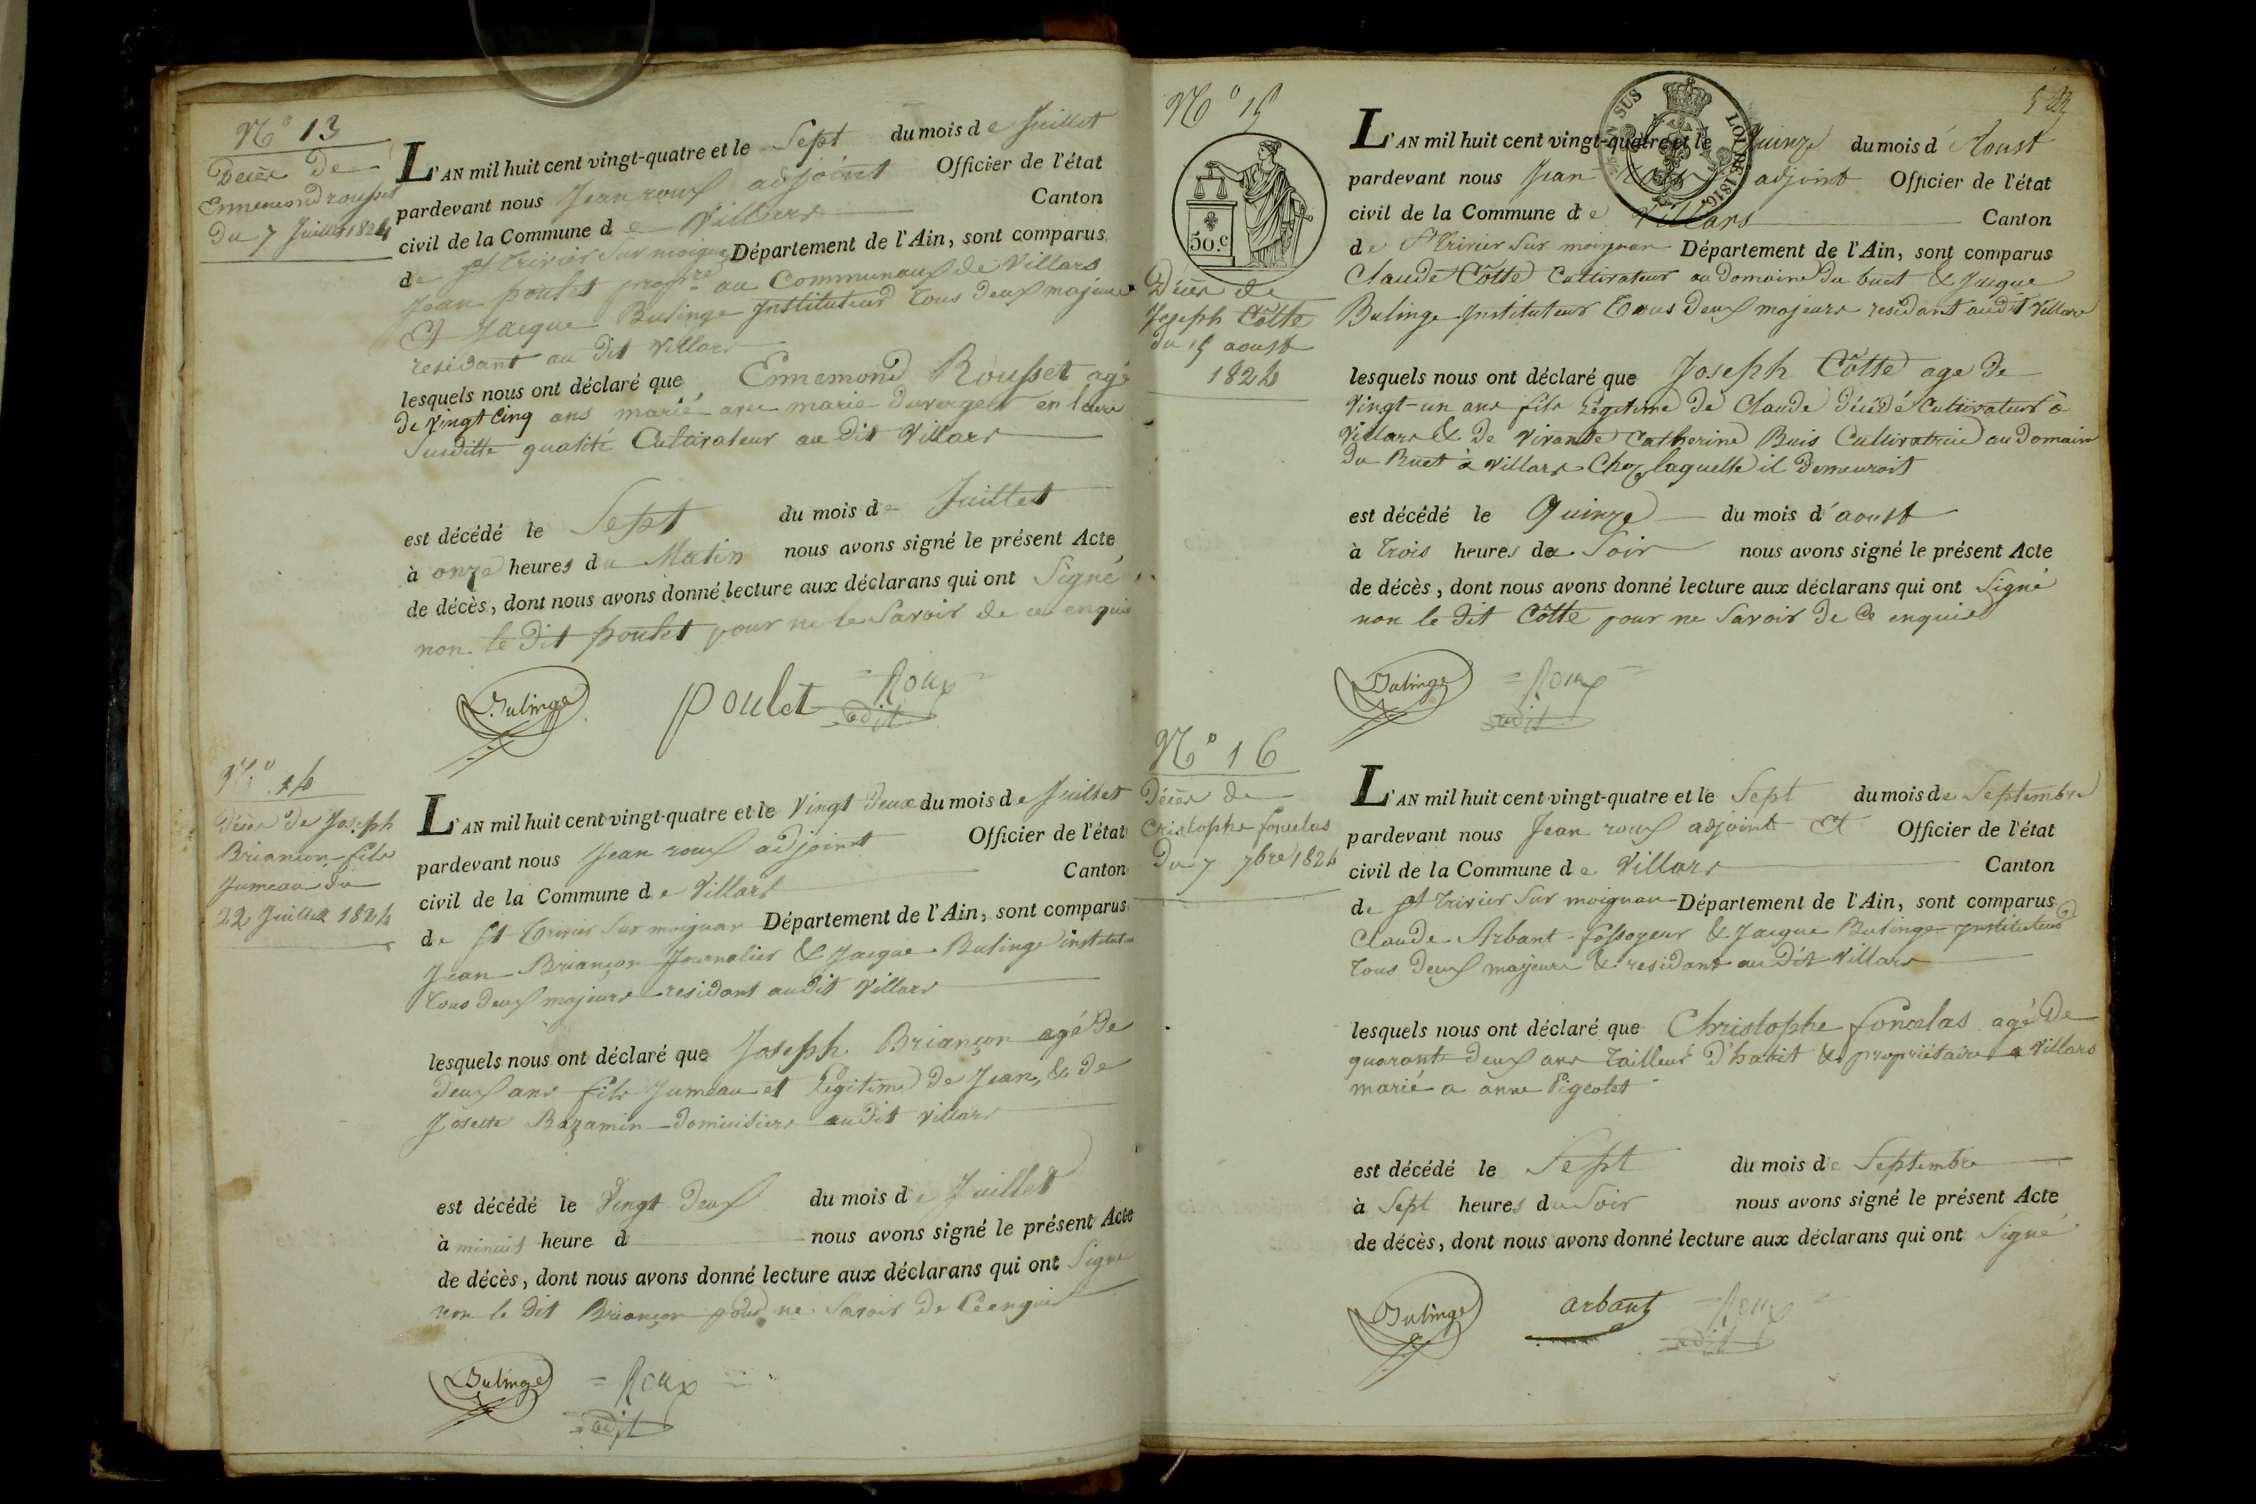 N.o 13
Décès de
Ennemond rousset
du 7 Juillet 1824
L'AN mil huit cent vingt-quatre et le Sept du mois de Juillet
pardevant nous Jean roux adjoint Officier de l'état
civil de la Commune de Villars Canton
de St Trivier Sur moignan Département de l'Ain, sont comparus
Jean poulet propre au Communaux de Villars
& Jacque Bulinge Instituteur tous deux majeurs
residant au dit Villars
lesquels nous ont déclaré que Ennemond Rousset agé
de vingt Cinq ans marié avec marie duverger en leur
Susditte qualité Cultivateur au dit Villars
est décédé le Sept du mois de Juillet
à onze heures du Matin nous avons signé le présent Acte
de décès, dont nous avons donné lecture aux déclarans qui ont Signé
non le dit poulet pour ne le Savoir de ce enquis
Bulinge poulet = Roux =
adjt
N.o 14
Décès de Joseph
Briançon fils
Jumeau du
22 Juillet 1824
L'AN mil huit cent vingt-quatre et le Vingt deux du mois de Juillet
pardevant nous Jean roux adjoint Officier de l'état
civil de la Commune de Villars Canton
de St Trivier Sur moignan Département de l'Ain, sont comparus
Jean Briançon Journalier & Jacque Bulinge institut
tous deux majeurs residant audit Villars
lesquels nous ont déclaré que Joseph Briançon agé de
deux ans fils Jumeau et Légitime de Jean, & de
Josette Bazamin domiciliers audit Villars
est décédé le Vingt deux du mois de Juillet
à minuit heure d nous avons signé le présent Acte
de décès, dont nous avons donné lecture aux déclarans qui ont Signé
non le dit Briançon pour ne Savoir de Ce enquis
Bulinge = Roux =
adjt
N.o 15
50.c
LOI DE 1816.
Décès de
Joseph Côtte
du 15 aoust
1824
L'AN mil huit cent vingt-quatre et le Quinze du mois d'Aoust
pardevant nous Jean roux adjoint Officier de l'état
civil de la Commune de Villars Canton
de St Trivier Sur moignan Département de l'Ain, sont comparus
Claude Côtte Cultivateur au domaine du buet & Jacque
Bulinge Instituteur tous deux majeurs residant audit Villars
lesquels nous ont déclaré que Joseph Côtte age de
Vingt-un ans fils Légitime de Claude décédé Cultivateur à
Villars & de vivante Catherine Buis Cultivatrice au domaine
du Buet à Villars Chez laquelle il demeuroit
est décédé le Quinze du mois d'aoust
à trois heures du Soir nous avons signé le présent Acte
de décès, dont nous avons donné lecture aux déclarans qui ont Signé
non le dit Côtte pour ne Savoir de Ce enquis
Bulinge = Roux =
adjt
N.o 16
Décès de
Cristophe foncelas
du 7 7bre 1824
L'AN mil huit cent vingt-quatre et le Sept du mois de Septembre
pardevant nous Jean roux adjoint Et Officier de l'état
civil de la Commune de Villars Canton
de St Trivier Sur moignan Département de l'Ain, sont comparus
Claude Arbant fossoyeur & Jacque Bulinge Instituteur
tous deux majeurs & residant au dit Villars
lesquels nous ont déclaré que Christophe foncelas agé de
quarante deux ans tailleur d'habit & propriétaire a Villars
marié a anne Pigeolet
est décédé le Sept du mois de Septembre
à Sept heures du Soir nous avons signé le présent Acte
de décès, dont nous avons donné lecture aux déclarans qui ont Signé
Bulinge arbant = Roux =
adjt